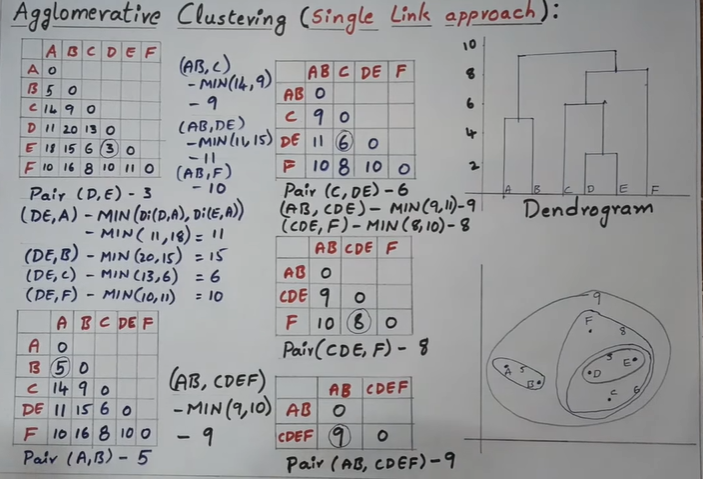 Agglomerative Clustering (Single Link approach):
A B C D E F
A 0
B 5 0
C 14 9 0
D 11 20 13 0
E 18 15 6 3 0
F 10 16 8 10 11 0
Pair (D,E) - 3
(DE,A) - MIN(Di(D,A), Di(E,A))
- MIN( 11,18) = 11
(DE,B) - MIN(20,15) = 15
(DE,C) - MIN(13,6) = 6
(DE,F) - MIN(10,11) = 10
A B C DE F
A 0
B 5 0
C 14 9 0
DE 11 15 6 0
F 10 16 8 10 0
Pair (A,B) - 5
(AB,C)
- MIN(14,9)
- 9
(AB,DE)
- MIN(11,15)
- 11
(AB,F)
- 10
AB C DE F
AB 0
C 9 0
DE 11 6 0
F 10 8 10 0
Pair (C,DE) - 6
(AB, CDE) - MIN(9,11)-9
(CDE,F) - MIN(8,10) - 8
AB CDE F
AB 0
CDE 9 0
F 10 8 0
Pair(CDE,F) - 8
(AB, CDEF)
- MIN(9,10)
- 9
AB CDEF
AB 0
CDEF 9 0
Pair (AB, CDEF) - 9
10
8
6
4
2
A B C D E F
Dendrogram
9
F
8
3
A 5
E
D
B
C 6